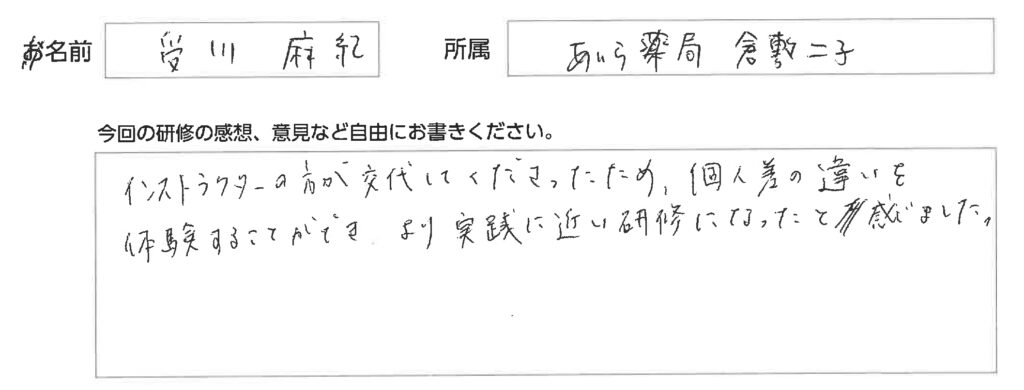 お名前 受川 麻紀 所属 あいら薬局 倉敷二子
今回の研修の感想、意見など自由にお書きください。
インストラクターの方が交代してくださったため、個人差の違いを
体験することができ、より実践に近い研修になったと感じました。